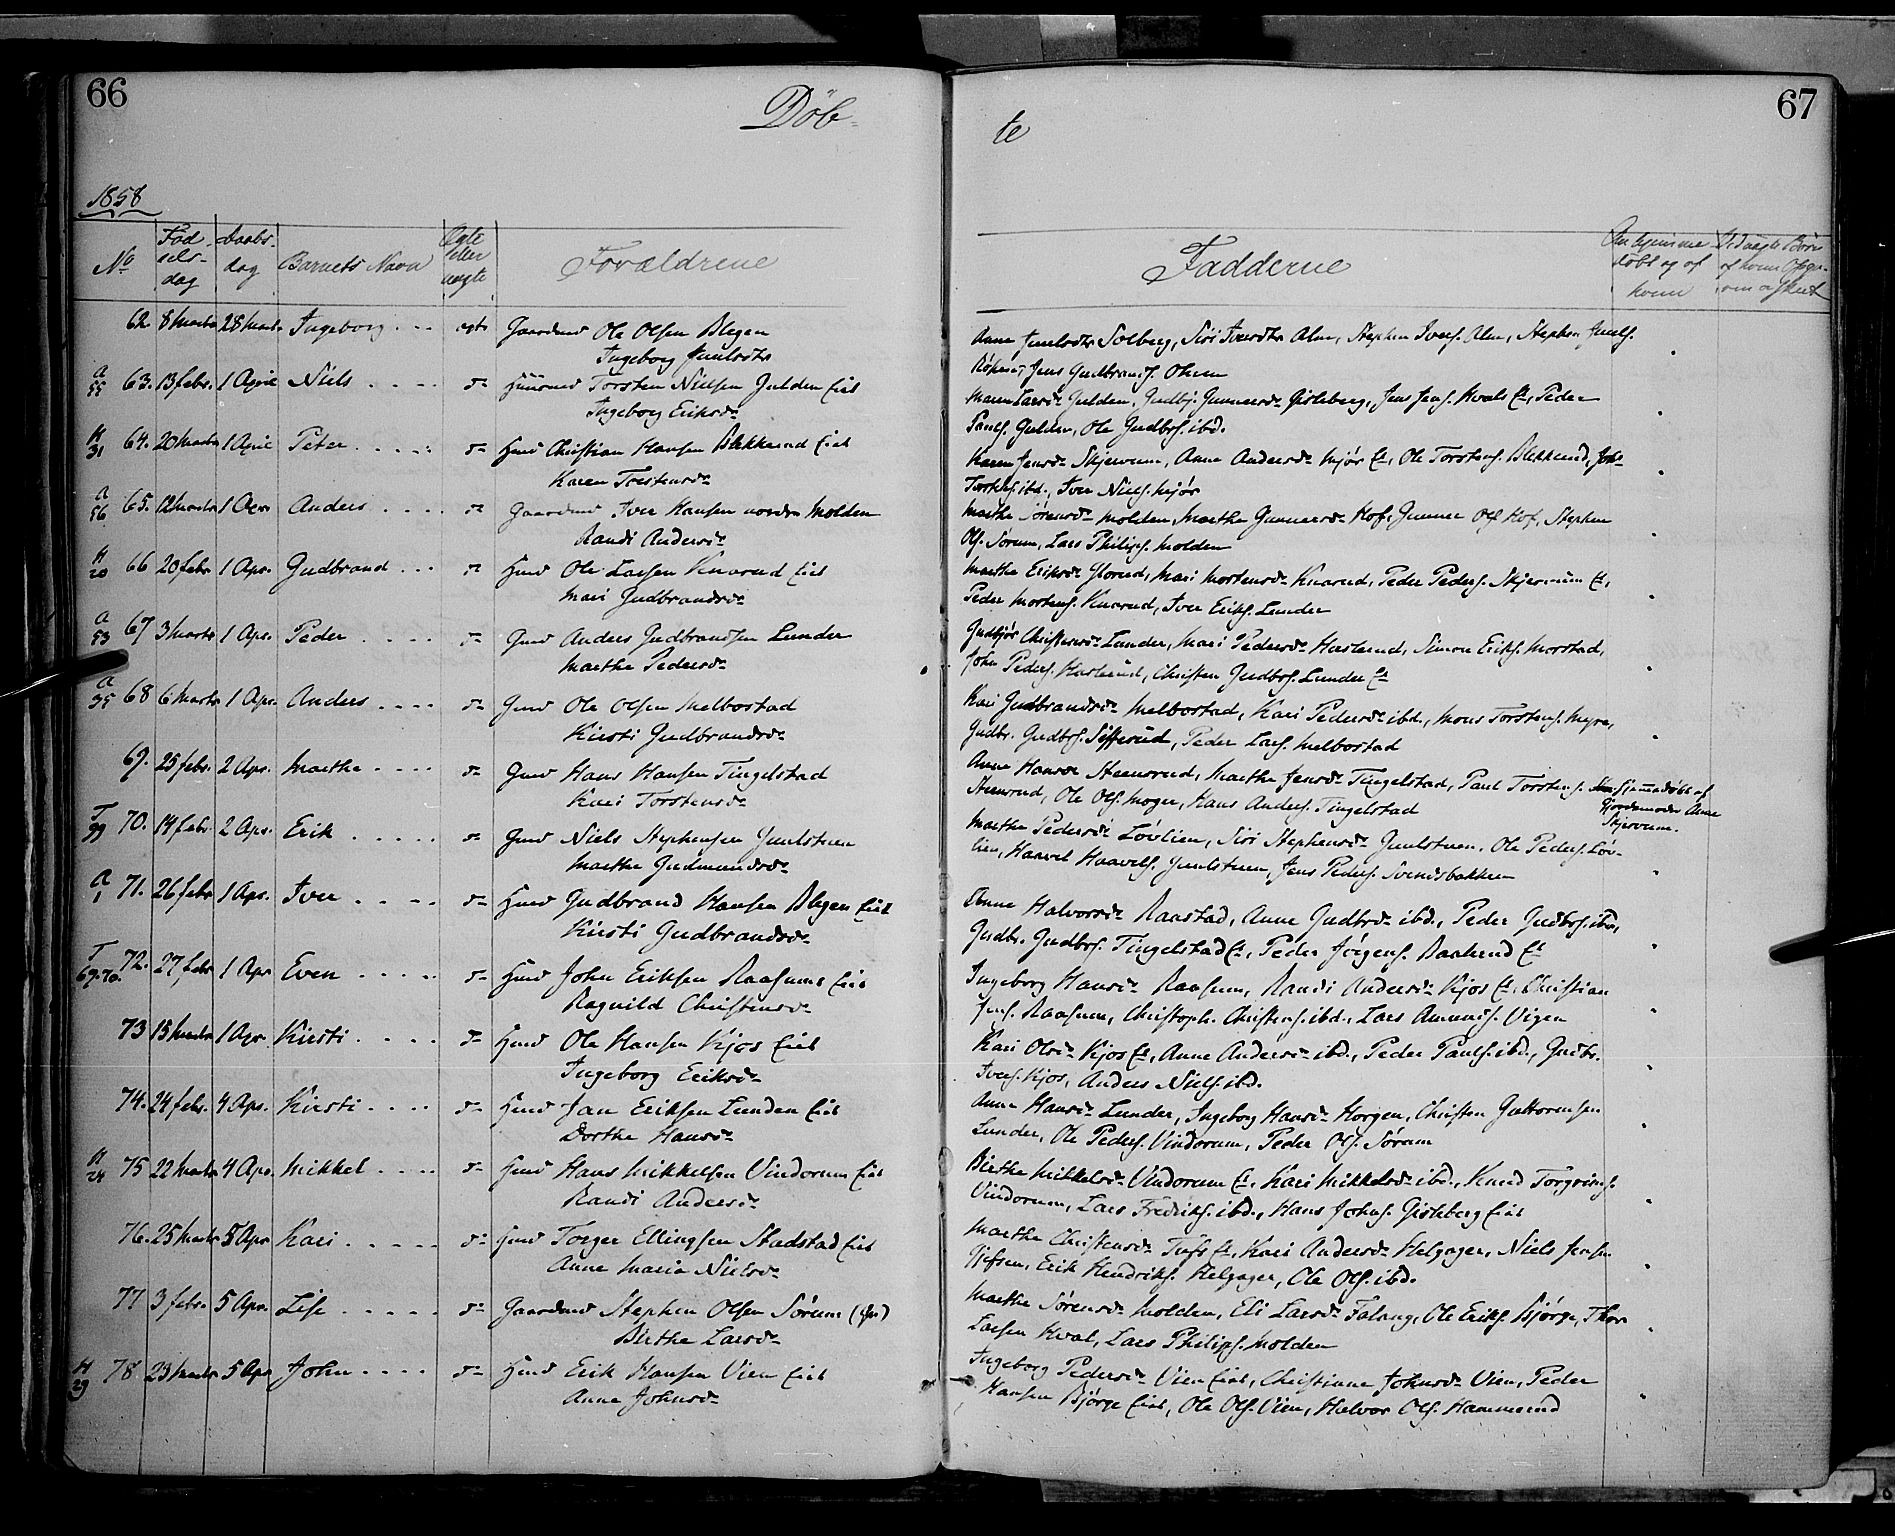 66
Döb-
1858
No
Fødselsdag
Daabsdag
Barnets Navn
Ægte eller uægte
Forældrene
62. 8 Marts 28 Marts Ingeborg ægte Gaardmd Ole Olsen Blegen
Ingeborg
A 55 63. 13 Febr. 1 April Niels do Huusmd Torsten Nielsen Gulden Eiet
Ingeborg Eriksdr
H 31 64. 20 Marts 1 April Peter do Hmd Christian Hansen Blekkerud Eiet
Karen Torstensdr
A 56 65. 12 Marts 1 Apr. Anders do Gaardmd Iver Hansen nordre Molden
Randi Andersdr
H 20 66 20 Febr 1 Apr. Gudbrand do Hmd Ole Larsen Knarud Eiet
Mari Gudbrandsdr
A 53 67 3 Marts 1 Apr. Peder do Gmd Anders Gudbrandsen Lunder
Marthe Pedersdr
A 35 68 6 Marts 1 Apr. Anders do Gmd Ole Olsen Melbostad
Kirsti Gudbrandsdr
69. 25 Febr. 2 Apr. Marthe do Gmd Hans Hansen Tingelstad
Kari Torstensdr
T 70. 14 Febr. 2 Apr. Erik do Gmd Niels Stephensen Juulstuen
Marthe Gudmundsdr
A 1 71. 26 Febr 1 Apr. Iver do Hmd Gudbrand Hansen Blegen Eiet
Kirsti Gudbrandsdr
T 69-70. 72. 27 Febr 1 Apr Even do Hmd John Eriksen Raasum Eiet
Ragnild Christensdr
73 15 Marts 1 Apr. Kirsti do Hmd Ole Hansen Kjos Eiet
Ingeborg Eriksdr
74. 24 Febr. 4 Apr. Kirsti do Hmd Jan Eriksen Lunden Eiet
Dorthe Hansdr
H 24 75 22 Marts 4 Apr. Mikkel do Hmd Hans Mikkelsen Vindorum Eiet
Randi Andersdr
76. 25 Marts 5 Apr Kari do Hmd Torger Ellingsen Stadstad Eiet
Anne Maria Nielsdr
77 3 Febr. 5 Apr. Lise do Gaardmd Stephen Olsen Sørum
Birthe Larsdr
H 29 78 23 Marts 5 Apr John do Hmd Erik Hansen Vien Eiet
Anne Johnsdr
67
te
Fadderne
Om hjemmedøbt og af hvem
Anne Solberg, Siri Iversdtr Alm, Stephen Ivers. Alm, Stephen
Jens Gudbrands.
Maren Larsdr Gulden, Gudbj. Gunnersdr Gisleberg, Jens Jens. Kvale Et, Peder
Pauls. Gulden, Ole Gudbrs. ibd.
Karen Jensdr Skjervum, Anne Andersdr Mjør Et, Ole Torstens. Blekkerud, John
Torstens. ibd., Iver Niels. Mjør
Marthe Sørensdr Molden, Marthe Gunnersdr Hof, Gunner Ols. Hof, Stephen
Ols. Sørum, Lars Philips. Molden
Marthe Eriksdr Glorud, Mari Mortensdr Knarud, Peder Peders. Skjervum Et,
Peder Mortens. Knarud, Iver Eriks. Lunder
Gudbjør Christensdr Lunder, Mari Pedersdr Haslerud, Simon Eriks. Morstad,
John Peders. Haslerud, Christen Gudbrs. Lunder Et
Kari Gudbrandsdr Melbostad, Kari Pedersdr ibd., Mons Torstens. Myra,
Gudbr. Gudbrs. Sifferud, Peder Lars. Melbostad
Anne Hansdr Steensrud, Marthe Jensdr Tingelstad, Paul Torstens.
Steensrud, Ole Ols. Moger, Hans Anders. Tingelstad
Hjemmedøbt af
Gjordemoder Anne
Skjervum.
Marthe Pedersdr Løvlien, Siri Stephensdr Juulstuen, Ole Peders. Løv-
lien, Haavel Haavels. Juulstuen, Jens Peders. Svendsbakken
Anne Halvorsdr Raastad, Anne Gudbrsdr ibd., Peder Gudbrs. ibd.,
Gudbr. Gudbrs. Tingelstad Et, Peder Jørgens. Et
Ingeborg Hansdr Raasum, Randi Andersdr Kjos Et, Christian
Jens. Raasum, Christoph. Christens. ibd., Lars Vigen
Kari Olsdr Kjos Et, Anne Andersdr ibd., Peder Pauls. ibd., Gudbr.
Ivers. Kjos, Anders Niels. ibd.
Anne Hansdr Lunder, Ingeborg Hansdr Horgen, Christen Guttormsen
Lunder, Ole Peders. Vindorum, Peder Ols. Sørum
Birthe Mikkelsdr Vindorum Et, Kari Mikkelsdr ibd., Knud Torgrims.
Vindorum, Lars Fredriks. ibd., Hans Johns. Gisleberg Eiet
Marthe Christensdr Tufs Et, Kari Andersdr Helgager, Niels Jensen
Erik Hendriks. Helgager, Ole Ols. ibd.
Marthe Sørensdr Molden, Eli Larsdr Falang, Ole Eriks. Bjørge, Thor
Larsen Kval, Lars Philips. Molden
Ingeborg Pedersdr Vien Eiet, Christianne Johnsdr Vien, Peder
Hansen Bjørge Eiet, Ole Ols. Vien, Halvor Ols. Hammerud